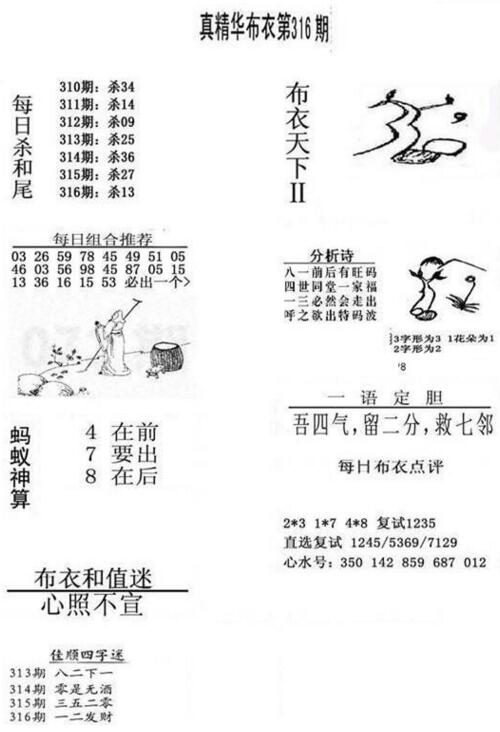 真精华布衣第316期
每日杀和尾
310期：杀34
311期：杀14
312期：杀09
313期：杀25
314期：杀36
315期：杀27
316期：杀13
布衣天下II
每日组合推荐
03 26 59 78 45 49 51 05
46 03 56 98 45 87 05 15
13 36 16 15 53 必出一个>
分析诗
八一前后有旺码
四世同堂一家福
一三必然会走出
呼之欲出特码波
3字形为3 1花朵为1
2字形为2
'8
一语定胆
吾四气，留二分，救七邻
蚂蚁神算
4 在前
7 要出
8 在后
每日布衣点评
2*3 1*7 4*8 复试1235
直选复试 1245/5369/7129
心水号：350 142 859 687 012
布衣和值迷
心照不宣
佳顺四字迷
313期 八二下一
314期 零是无酒
315期 三五二零
316期 一二发财